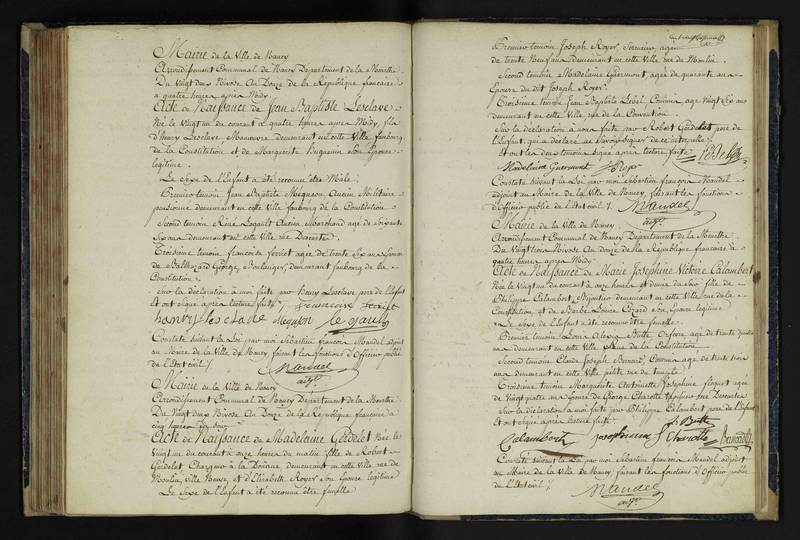 Mairie de la Ville de Nancy
Arrondissement Communal de Nancy Département de la Meurthe
Du Vingt deux Nivose An Douze de la République française
a quatre heures après Midy
Acte de Naissance de Jean Baptiste Lesclave
Né le Vingt un du courant a quatre heures après Midy, fils
d'henry Lesclave Manœuvre demeurant en cette Ville faubourg
de la Constitution et de Marguerite son Epouse
legitime
Le Sexe de l'Enfant a été reconnu être Male.
Premier temoin Jean Baptiste Ancien Militaire
pensionné demeurant en cette Ville faubourg de la Constitution
Second temoin Réné Legault Ancien Marchand agé de Soixante
Six ans demeurant en cette Ville rue Descartes.
Troisieme temoin francoise ferriet agée de trente Six ans femme
de Balthazard George Boulanger, demeurant faubourg de la
Constitution
Sur la déclaration à moi faite par henry Lesclave pere de l'Enfant
et ont signé après lecture faite /
Constaté Suivant la Loi par moi Sébastien francois Mandel adjoint
au Maire de la Ville de Nancy, faisant les fonctions d'Officier public
de l'Etat civil /
Mandel
adjt
Mairie de la Ville de Nancy
Arrondissement Communal de Nancy Département de la Meurthe
Du Vingt deux Nivose An Douze de la République francaise a
cinq heures du Soir
Acte de Naissance de Madelaine Gerdelet Née le
Vingt un du courant a onze heures du matin fille de Robert
Gerdelet a la Douane demeurant en cette Ville rue du
Moulin, Ville Neuve, et d'Elizabeth Royer Son Epouse legitime
Le Sexe de l'Enfant a été reconnu être femelle
Premier temoin Joseph Royer, Serrurier agé
de trente Neuf ans demeurant en cette Ville rue du Moulin.
Second temoin Madelaine Guermont, agée de quarante ans
Epouse du dit Joseph Royer.
Troisieme temoin Jean Baptiste Lebel Commis agé Vingt Six ans
demeurant en cette Ville rue de la Convention
Sur la déclaration a nous faite par Robert Gerdelet pere de
l'Enfant qui a déclaré ne Savoir Signer de ce interpellé /
Et ont les dits temoins Signé après lecture faite
Madelaine Guermont Royer
Constaté Suivant la Loi par moi Sébastien francois Mandel
adjoint au Maire de la Ville de Nancy, faisant les fonctions
d'Officier public de l'Etat civil /
Mandel
adjt
Mairie de la Ville de Nancy
Arrondissement Communal de Nancy Département de la Meurthe
Du Vingt trois Nivose An douze de la République francaise à
quatre heures après Midy
Acte de Naissance de Marie Josephine Victoire Calambert
Née le Vingt du courant à onze heures et demie du Soir fille de
Philippe Calambert, Bijoutier demeurant en cette Ville rue de la
Constitution, et de Barbe Louise Son Epouse legitime
Le Sexe de l'Enfant a été reconnu être femelle.
Premier temoin Louis Alexis Butte Orfevre agé de trente
ans demeurant en cette Ville rue de la Constitution
Second temoin Claude Joseph Bernard, Commis agé de trente trois
ans demeurant en cette Ville petite rue du temple
Troisieme temoin Marguerite Antoinette Josephine agée
de Vingt quatre ans Epouse de George Charotte rue Descartes
Sur la déclaration à moi faite par Philippe Calambert pere de l'Enfant
Et ont Signé après lecture faite.
Calambert Josephine Charotte
Constaté Suivant la Loi par moi Sébastien francois Mandel adjoint
au Maire de la Ville de Nancy, faisant les fonctions d'Officier public
de l'Etat civil /
Mandel
adjt